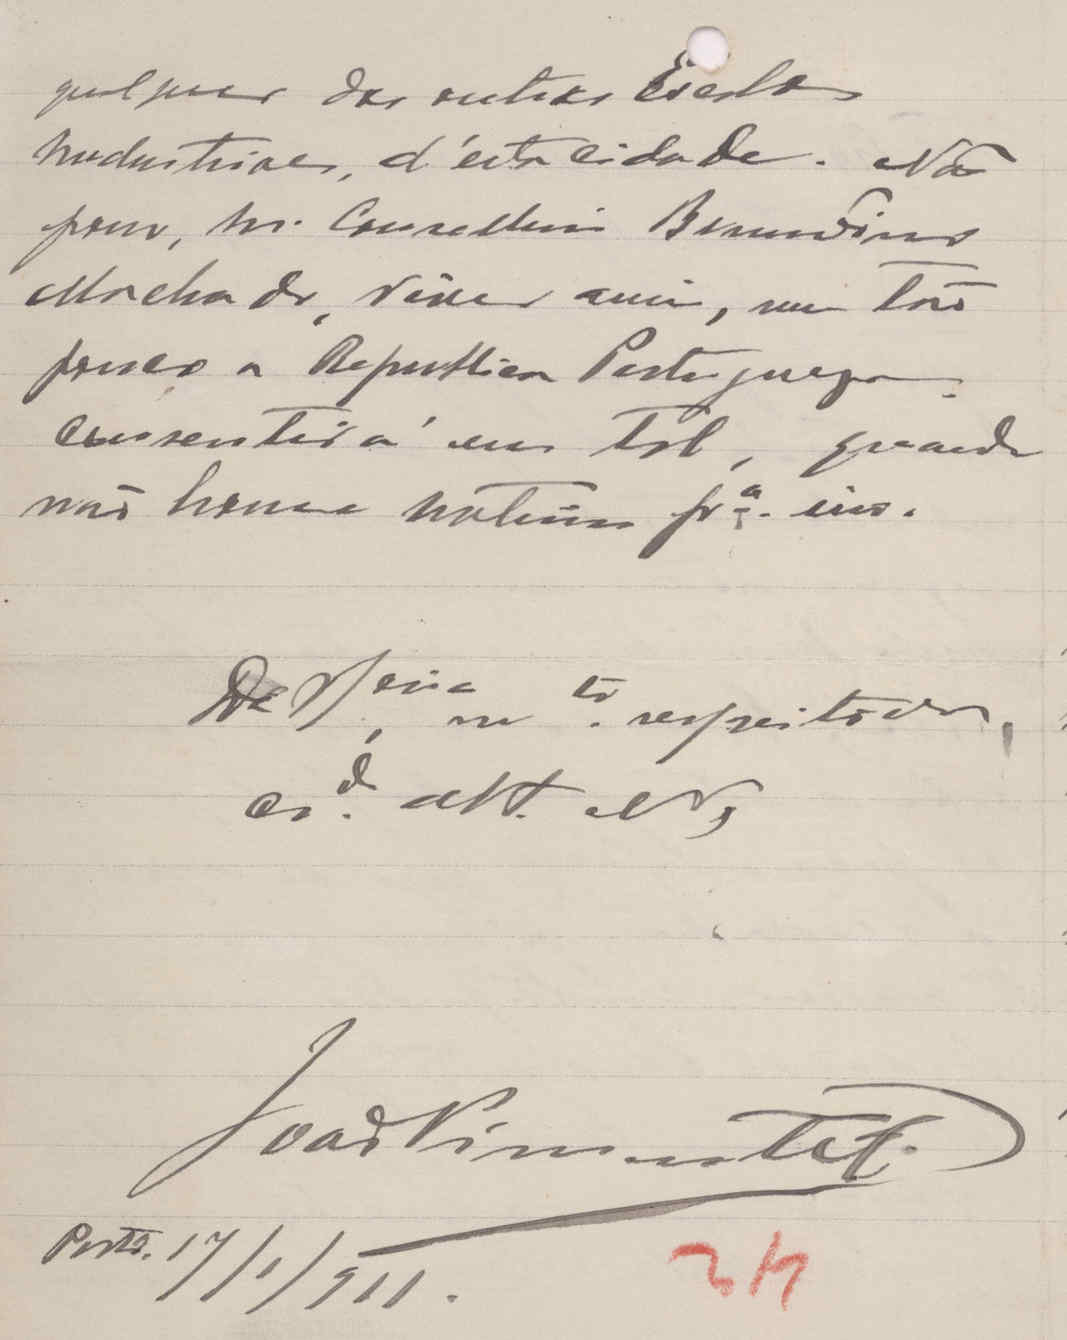 qualquer das outras Escolas
Industriaes, d'esta cidade. Não
posso, Sr. Conselheiro Bernardino
Machado, viver assim, nem tão
pouco a Republica Portugueza
consentirá em tal, quando
não houve motivo pª. isso.
De V. Exia mto. respeitador,
cr.do att. Vr,
João Pimentel
Porto. 17/1/911.